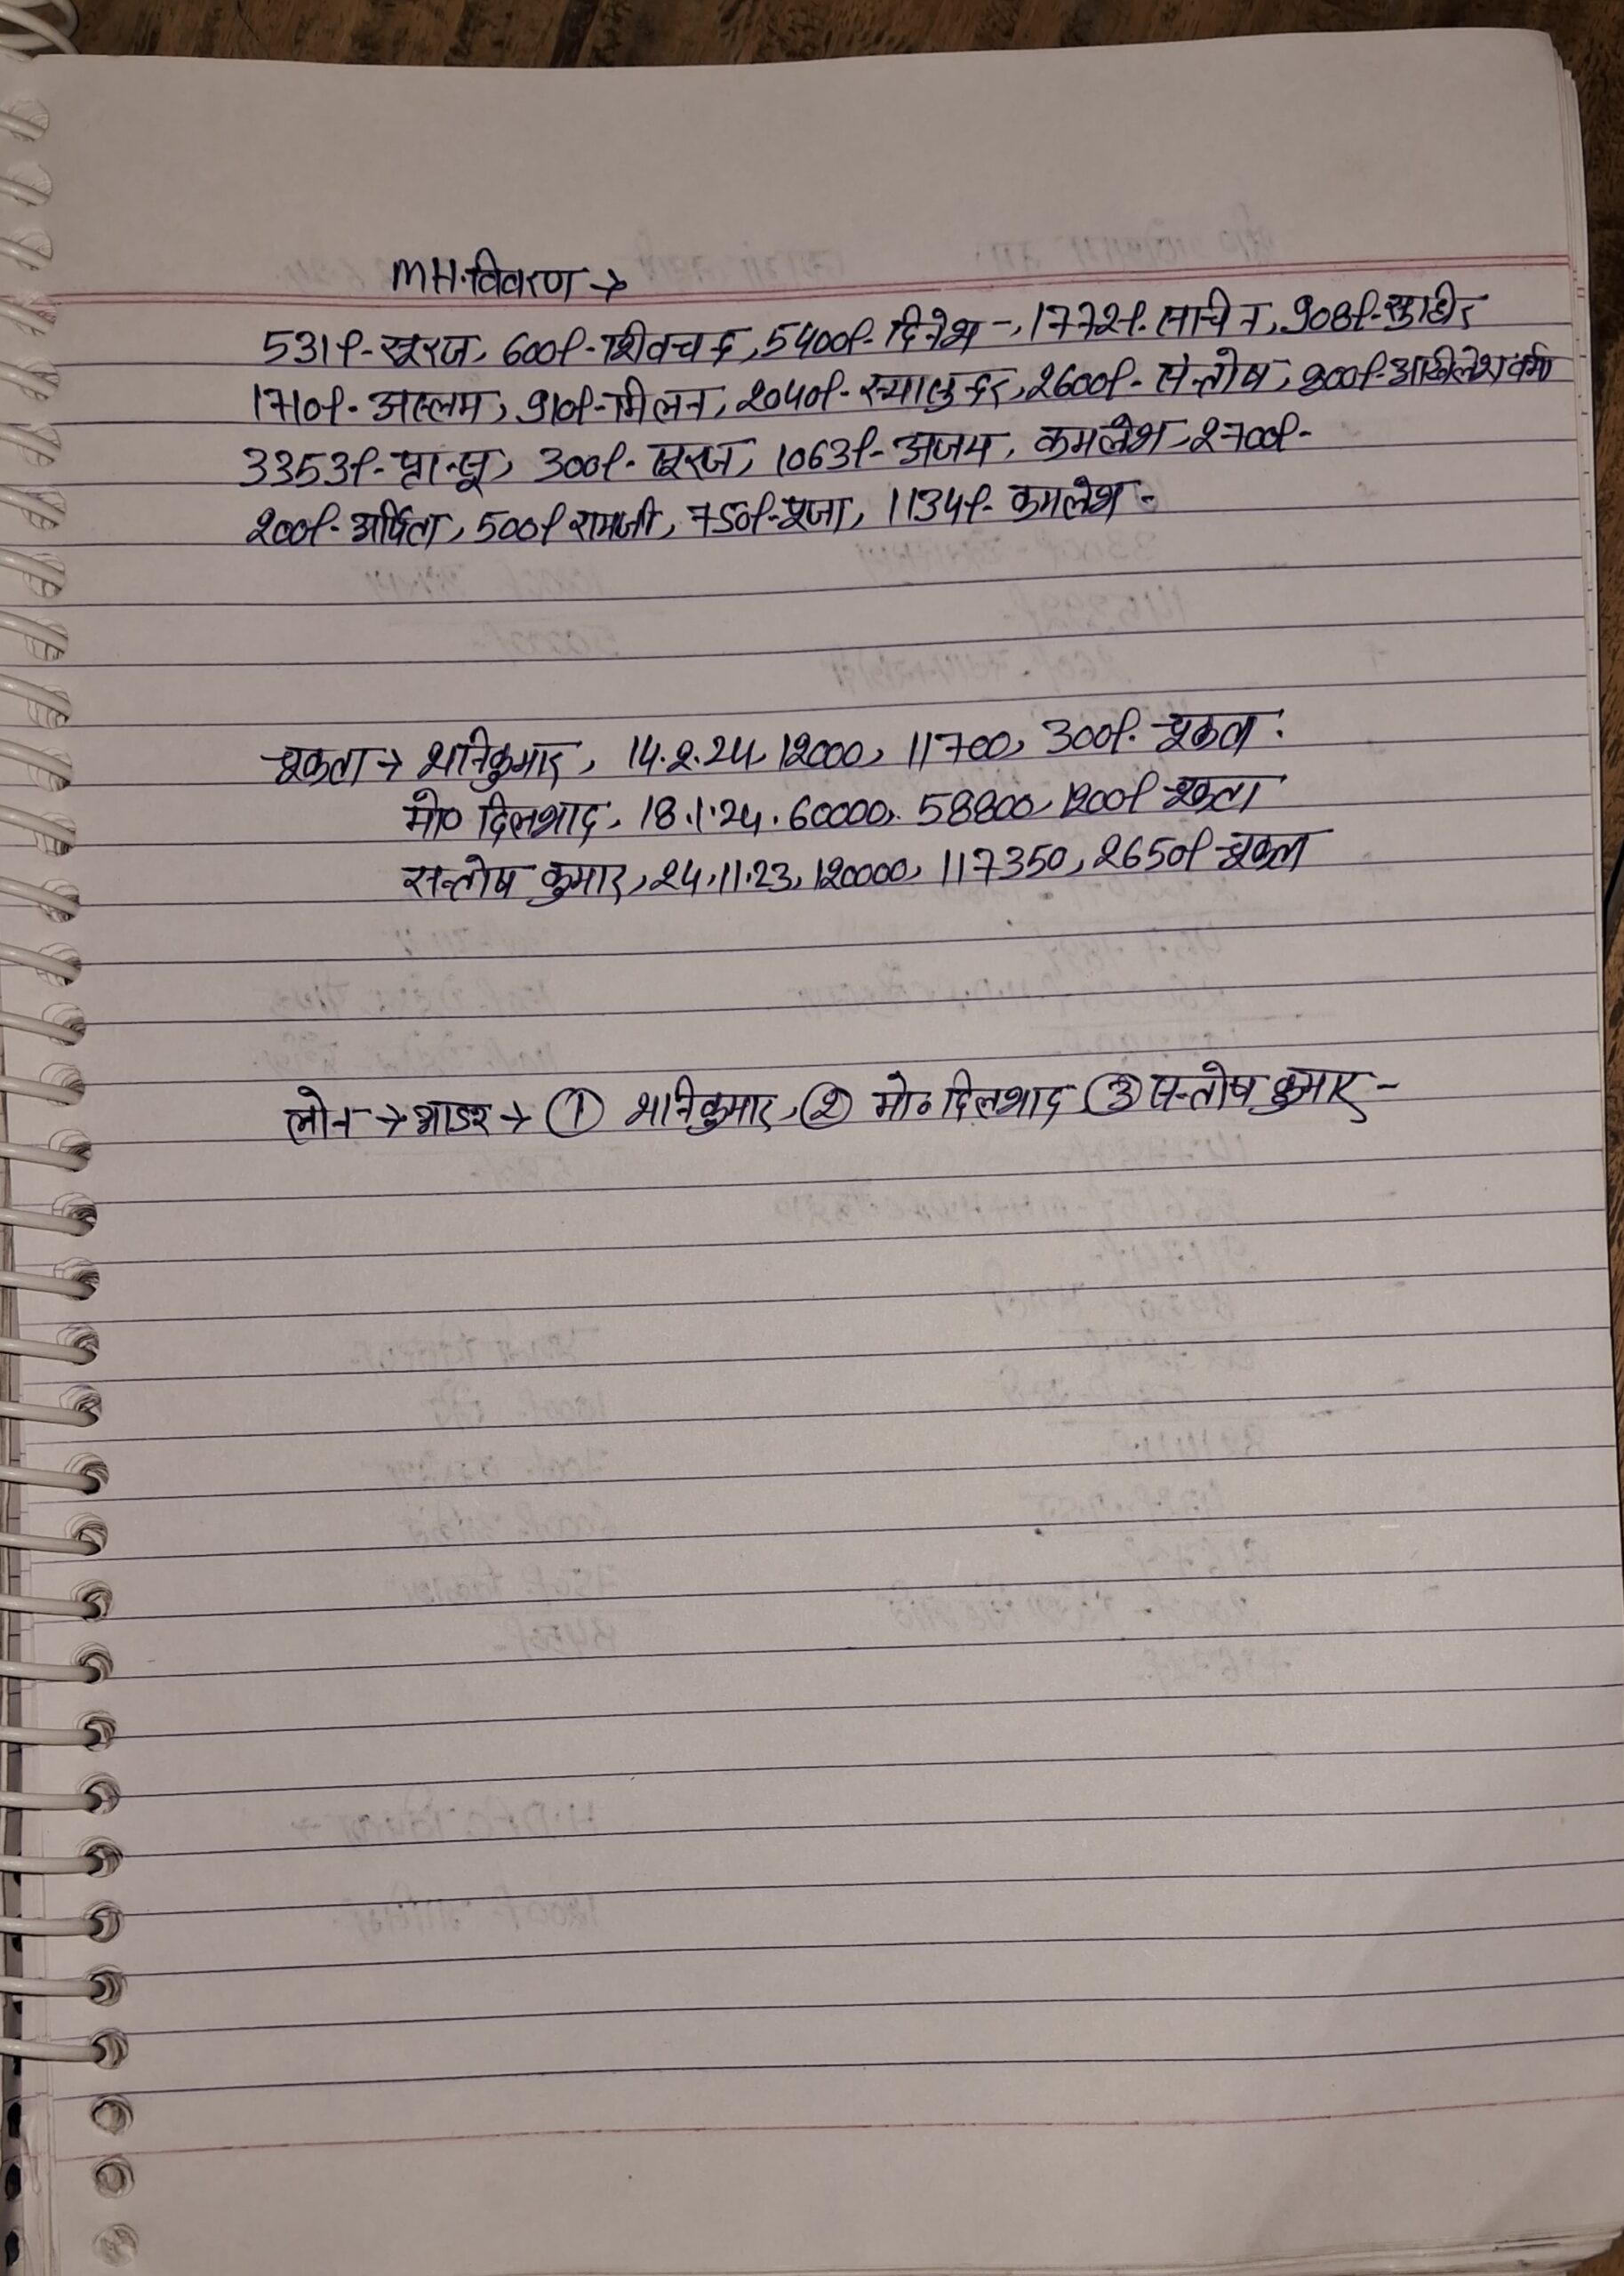 MH.विवरण →
531/-सूरज, 600/-शिवचन्द, 5400/-दिनेश-, 1772/-सचिन, 908/-सुधीर
1710/-असलम, 910/-मिलन, 2040/-, 2600/-सन्तोष, 800/-अखिलेश वर्मा
3353/-, 300/-सूरज, 1063/-अजय, कमलेश-2700/-
200/-अर्पिता, 500/ रामजी, 750/-पूजा, 1134/-कमलेश-
चुकता → शनिकुमार, 14.2.24, 12000, 11700, 300/- चुकता.
मो० दिलशाद, 18.1.24. 60000, 58800, 1200/- चुकता
सन्तोष कुमार, 24.11.23, 120000, 117350, 2650/- चुकता
लोन → आडर → ① शनिकुमार, ② मो० दिलशाद ③ सन्तोष कुमार-